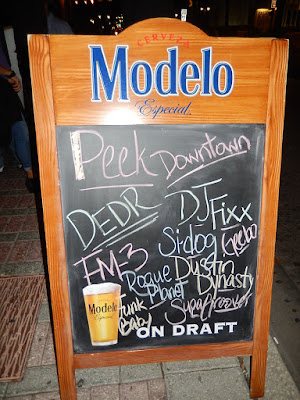 CERVEZA
Modelo
Especial
Peek Downtown
DEDR
DJ Fixx
Si-dog Geebo
FM-3
Rogue Planet
Dustin Dynasty
Funk Baby
Supagroover
Modelo
Especial
ON DRAFT